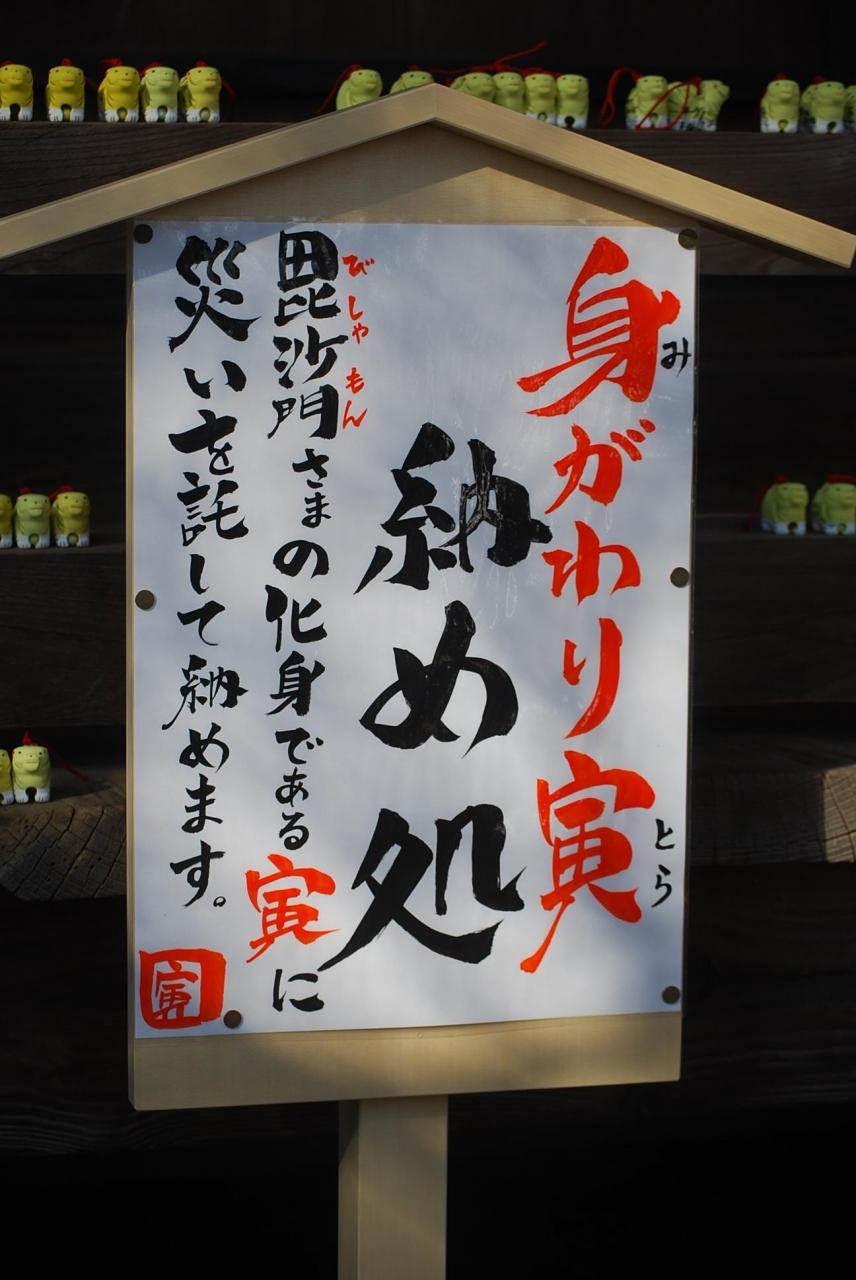 身がわり寅
み
とら
納め処
毘沙門さまの化身である寅に
びしゃもん
災いを託して納めます。
寅